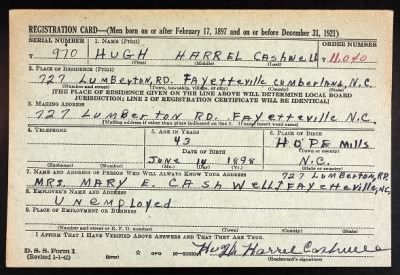 REGISTRATION CARD—(Men born on or after February 17, 1897 and on or before December 31, 1921)
SERIAL NUMBER 1. NAME (Print) ORDER NUMBER
T 970 HUGH HARREL CASHWELL 11,040
2. PLACE OF RESIDENCE (Print)
727 LUMBERTON, RD. FAYETTEVILLE CUMBERLAND, N.C.
(Number and street) (Town, township, village, or city) (County) (State)
[THE PLACE OF RESIDENCE GIVEN ON THE LINE ABOVE WILL DETERMINE LOCAL BOARD
JURISDICTION; LINE 2 OF REGISTRATION CERTIFICATE WILL BE IDENTICAL]
3. MAILING ADDRESS
727 LUMBERTON RD. FAYETTEVILLE N.C.
[Mailing address if other than place indicated on line 2. If same insert word same]
4. TELEPHONE 5. AGE IN YEARS 6. PLACE OF BIRTH
43 HOPE Mills
DATE OF BIRTH (Town or county)
JUNE 14 1898 N.C.
(Exchange) (Number) (Mo.) (Day) (Yr.) (State or country)
7. NAME AND ADDRESS OF PERSON WHO WILL ALWAYS KNOW YOUR ADDRESS 727 LUMBERTON, RD.
MRS. MARY E. CASHWELL, FAYETTEVILLE, N.C.
8. EMPLOYER'S NAME AND ADDRESS
UNEMPLOYED
9. PLACE OF EMPLOYMENT OR BUSINESS
(Number and street or R. F. D. number) (Town) (County) (State)
I AFFIRM THAT I HAVE VERIFIED ABOVE ANSWERS AND THAT THEY ARE TRUE.
D. S. S. Form 1 GPO Hugh Harrel Cashwell
(Revised 1-1-42) (Registrant's signature)